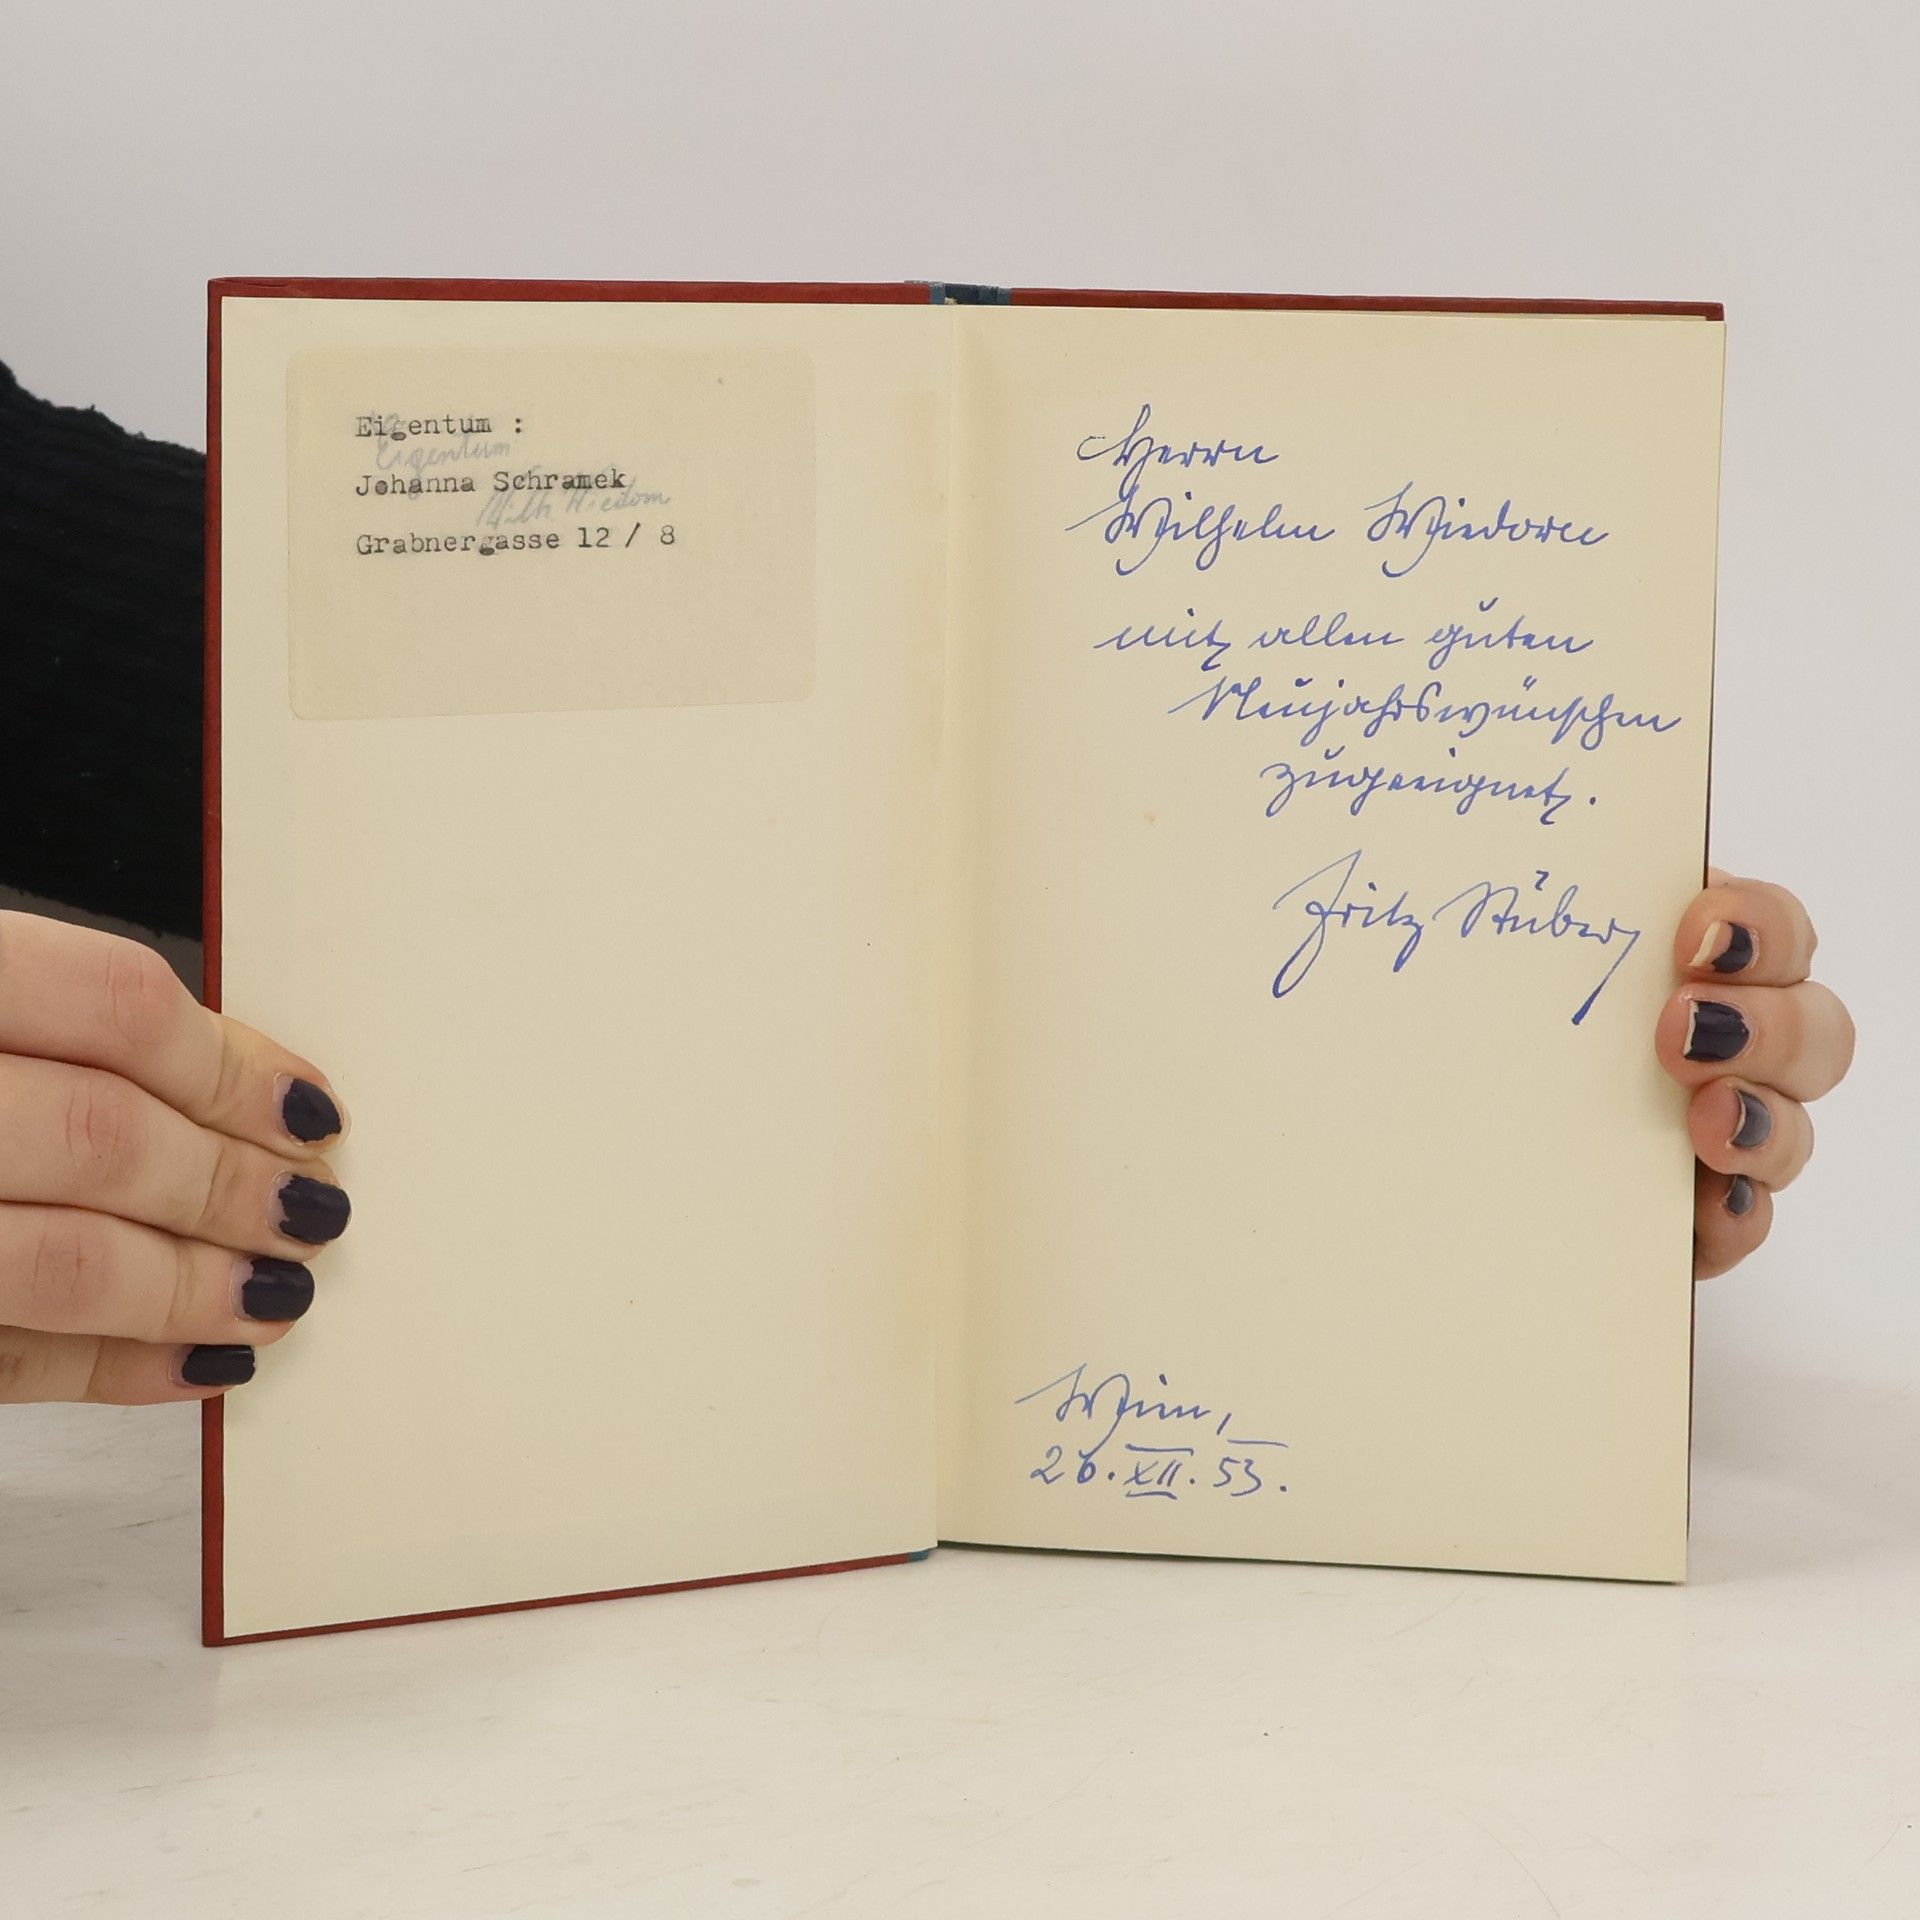 Eigentum :
Eigentum
Johanna Schramek
Wilh Wiedorn
Grabnergasse 12 / 8
Herrn
Wilhelm Wiedorn
mit allen guten
Neujahrswünschen
zugeeignet.
Fritz Stüber
Wien,
26. XII. 53.